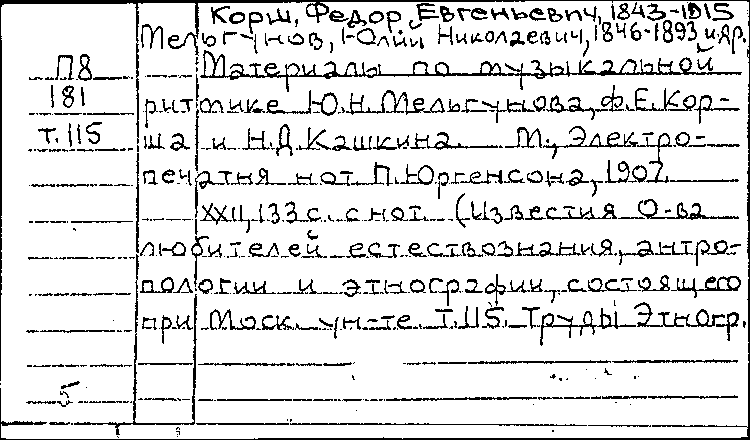 Корш, Федор Евгеньевич, 1843-1915
Мельгунов, Юлий Николаевич, 1846-1893 и др.
П8 Материалы по музыкальной
181 ритмике Ю.Н. Мельгунова, Ф.Е. Кор-
т.115 ша и Н.Д. Кашкина. М., Электро-
печатня нот П. Юргенсона, 1907.
XXII, 133 с. с нот. (Известия О-ва
любителей естествознания, антро-
пологии и этнографии, состоящего
при Моск. ун-те. Т.115. Труды Этногр.
5